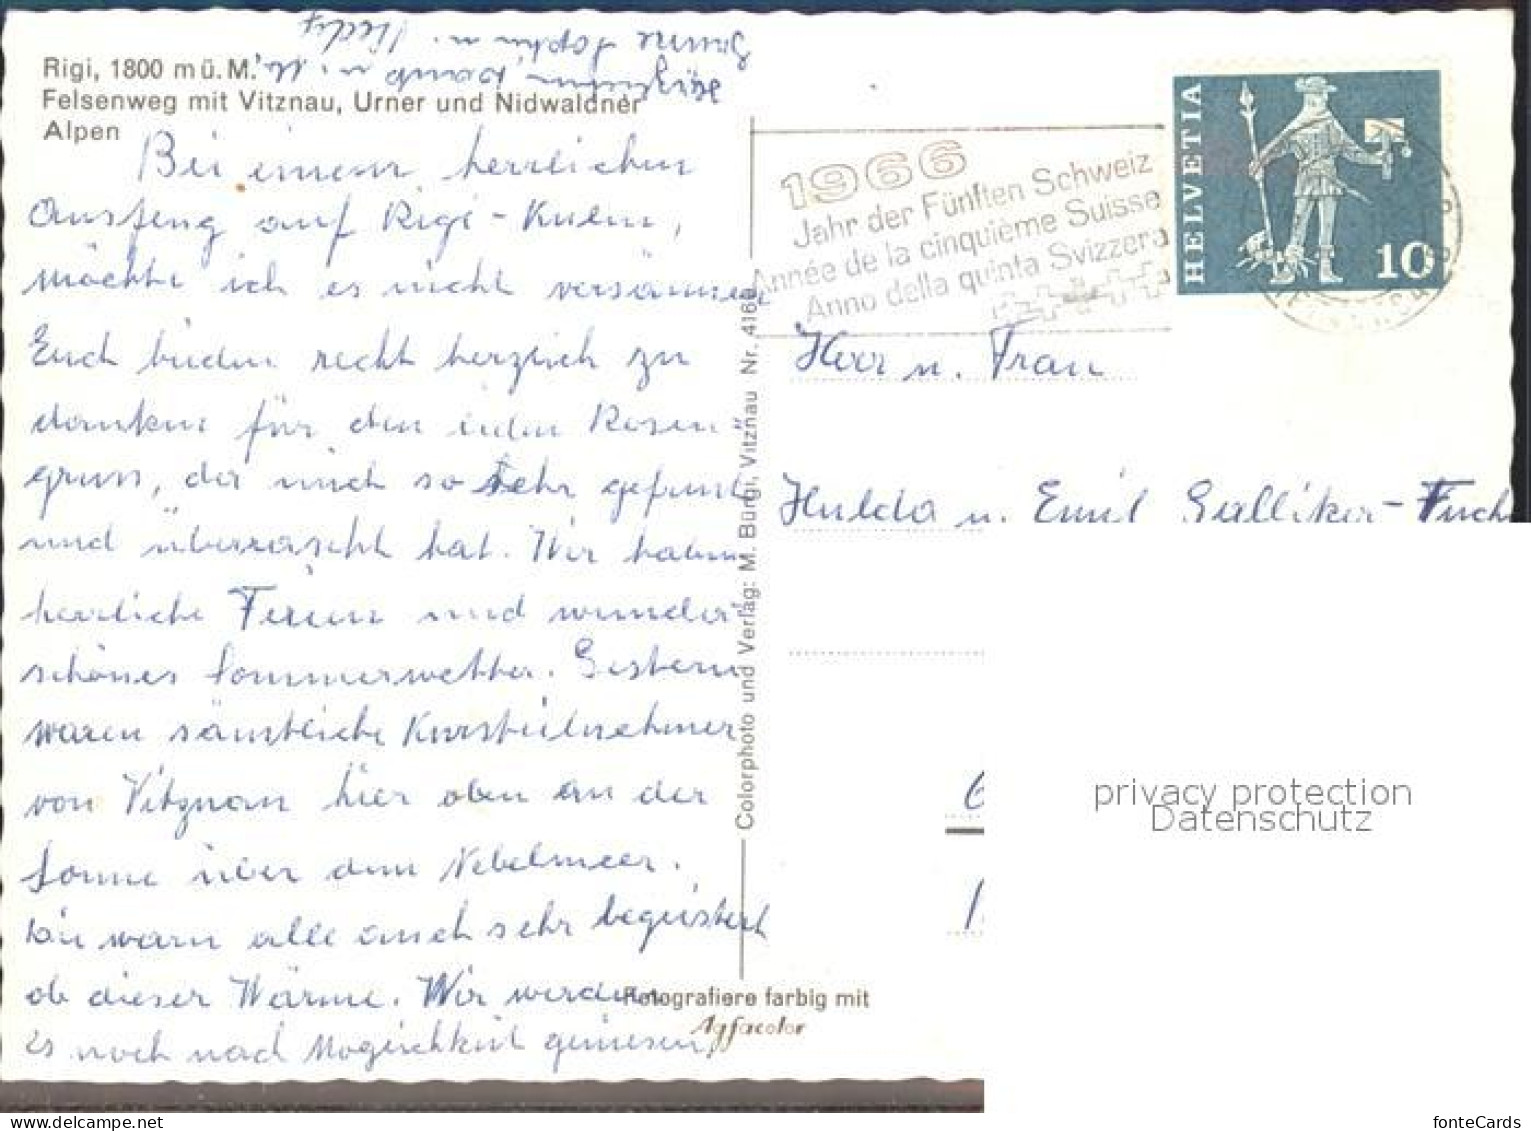 Rigi, 1800 m ü. M.
Felsenweg mit Vitznau, Urner und Nidwaldner
Alpen
Bei einem herrlichen
Ausflug auf Rigi-Kulm,
möchte ich es nicht versäumen
Euch beiden recht herzlich zu
danken für den lieben
gruss, der mich so sehr gefreut
und überrascht hat. Wir haben
herrliche Ferien und wunder
schönes Sommerwetter. Gestern
waren sämtliche Kursteilnehmer
von Vitznau hier oben an der
Sonne über dem Nebelmeer.
Wir waren alle auch sehr begeistert
ob dieser Wärme. Wir werden
es noch nach Möglichkeit geniessen,
Colorphoto und Verlag: M. Bürgi, Vitznau Nr. 416
Fotografiere farbig mit
Agfacolor
1966
Jahr der Fünften Schweiz
Année de la cinquième Suisse
Anno della quinta Svizzera
HELVETIA
10
Herr u. Frau
Hulda u. Emil Galliker-Fuchs
privacy protection
Datenschutz
fonteCards